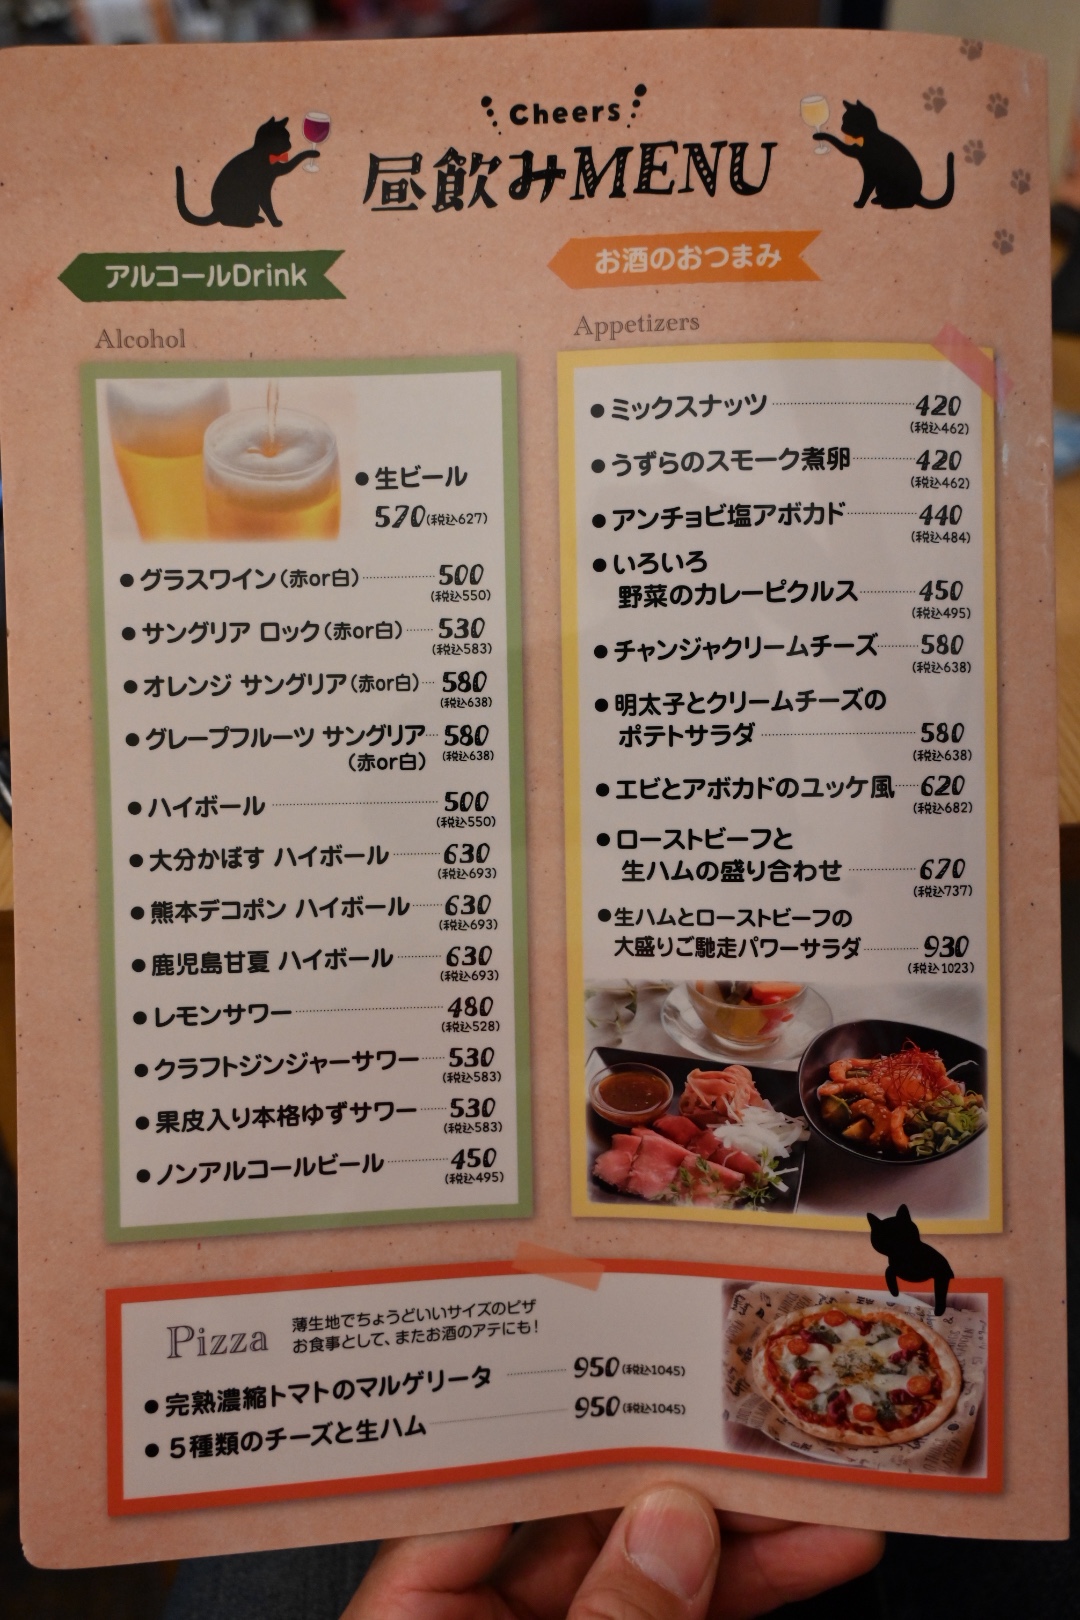 Cheers
昼飲みMENU
アルコールDrink
Alcohol
●生ビール
570(税込627)
●グラスワイン(赤or白) 500
(税込550)
●サングリア ロック(赤or白) 530
(税込583)
●オレンジ サングリア(赤or白) 580
(税込638)
●グレープフルーツ サングリア 580
(赤or白) (税込638)
●ハイボール 500
(税込550)
●大分かぼす ハイボール 630
(税込693)
●熊本デコポン ハイボール 630
(税込693)
●鹿児島甘夏 ハイボール 630
(税込693)
●レモンサワー 480
(税込528)
●クラフトジンジャーサワー 530
(税込583)
●果皮入り本格ゆずサワー 530
(税込583)
●ノンアルコールビール 450
(税込495)
お酒のおつまみ
Appetizers
●ミックスナッツ 420
(税込462)
●うずらのスモーク煮卵 420
(税込462)
●アンチョビ塩アボカド 440
(税込484)
●いろいろ
野菜のカレーピクルス 450
(税込495)
●チャンジャクリームチーズ 580
(税込638)
●明太子とクリームチーズの
ポテトサラダ 580
(税込638)
●エビとアボカドのユッケ風 620
(税込682)
●ローストビーフと
生ハムの盛り合わせ 670
(税込737)
●生ハムとローストビーフの
大盛りご馳走パワーサラダ 930
(税込1023)
Pizza
薄生地でちょうどいいサイズのピザ
お食事として、またお酒のアテにも!
●完熟濃縮トマトのマルゲリータ 950(税込1045)
●5種類のチーズと生ハム 950(税込1045)